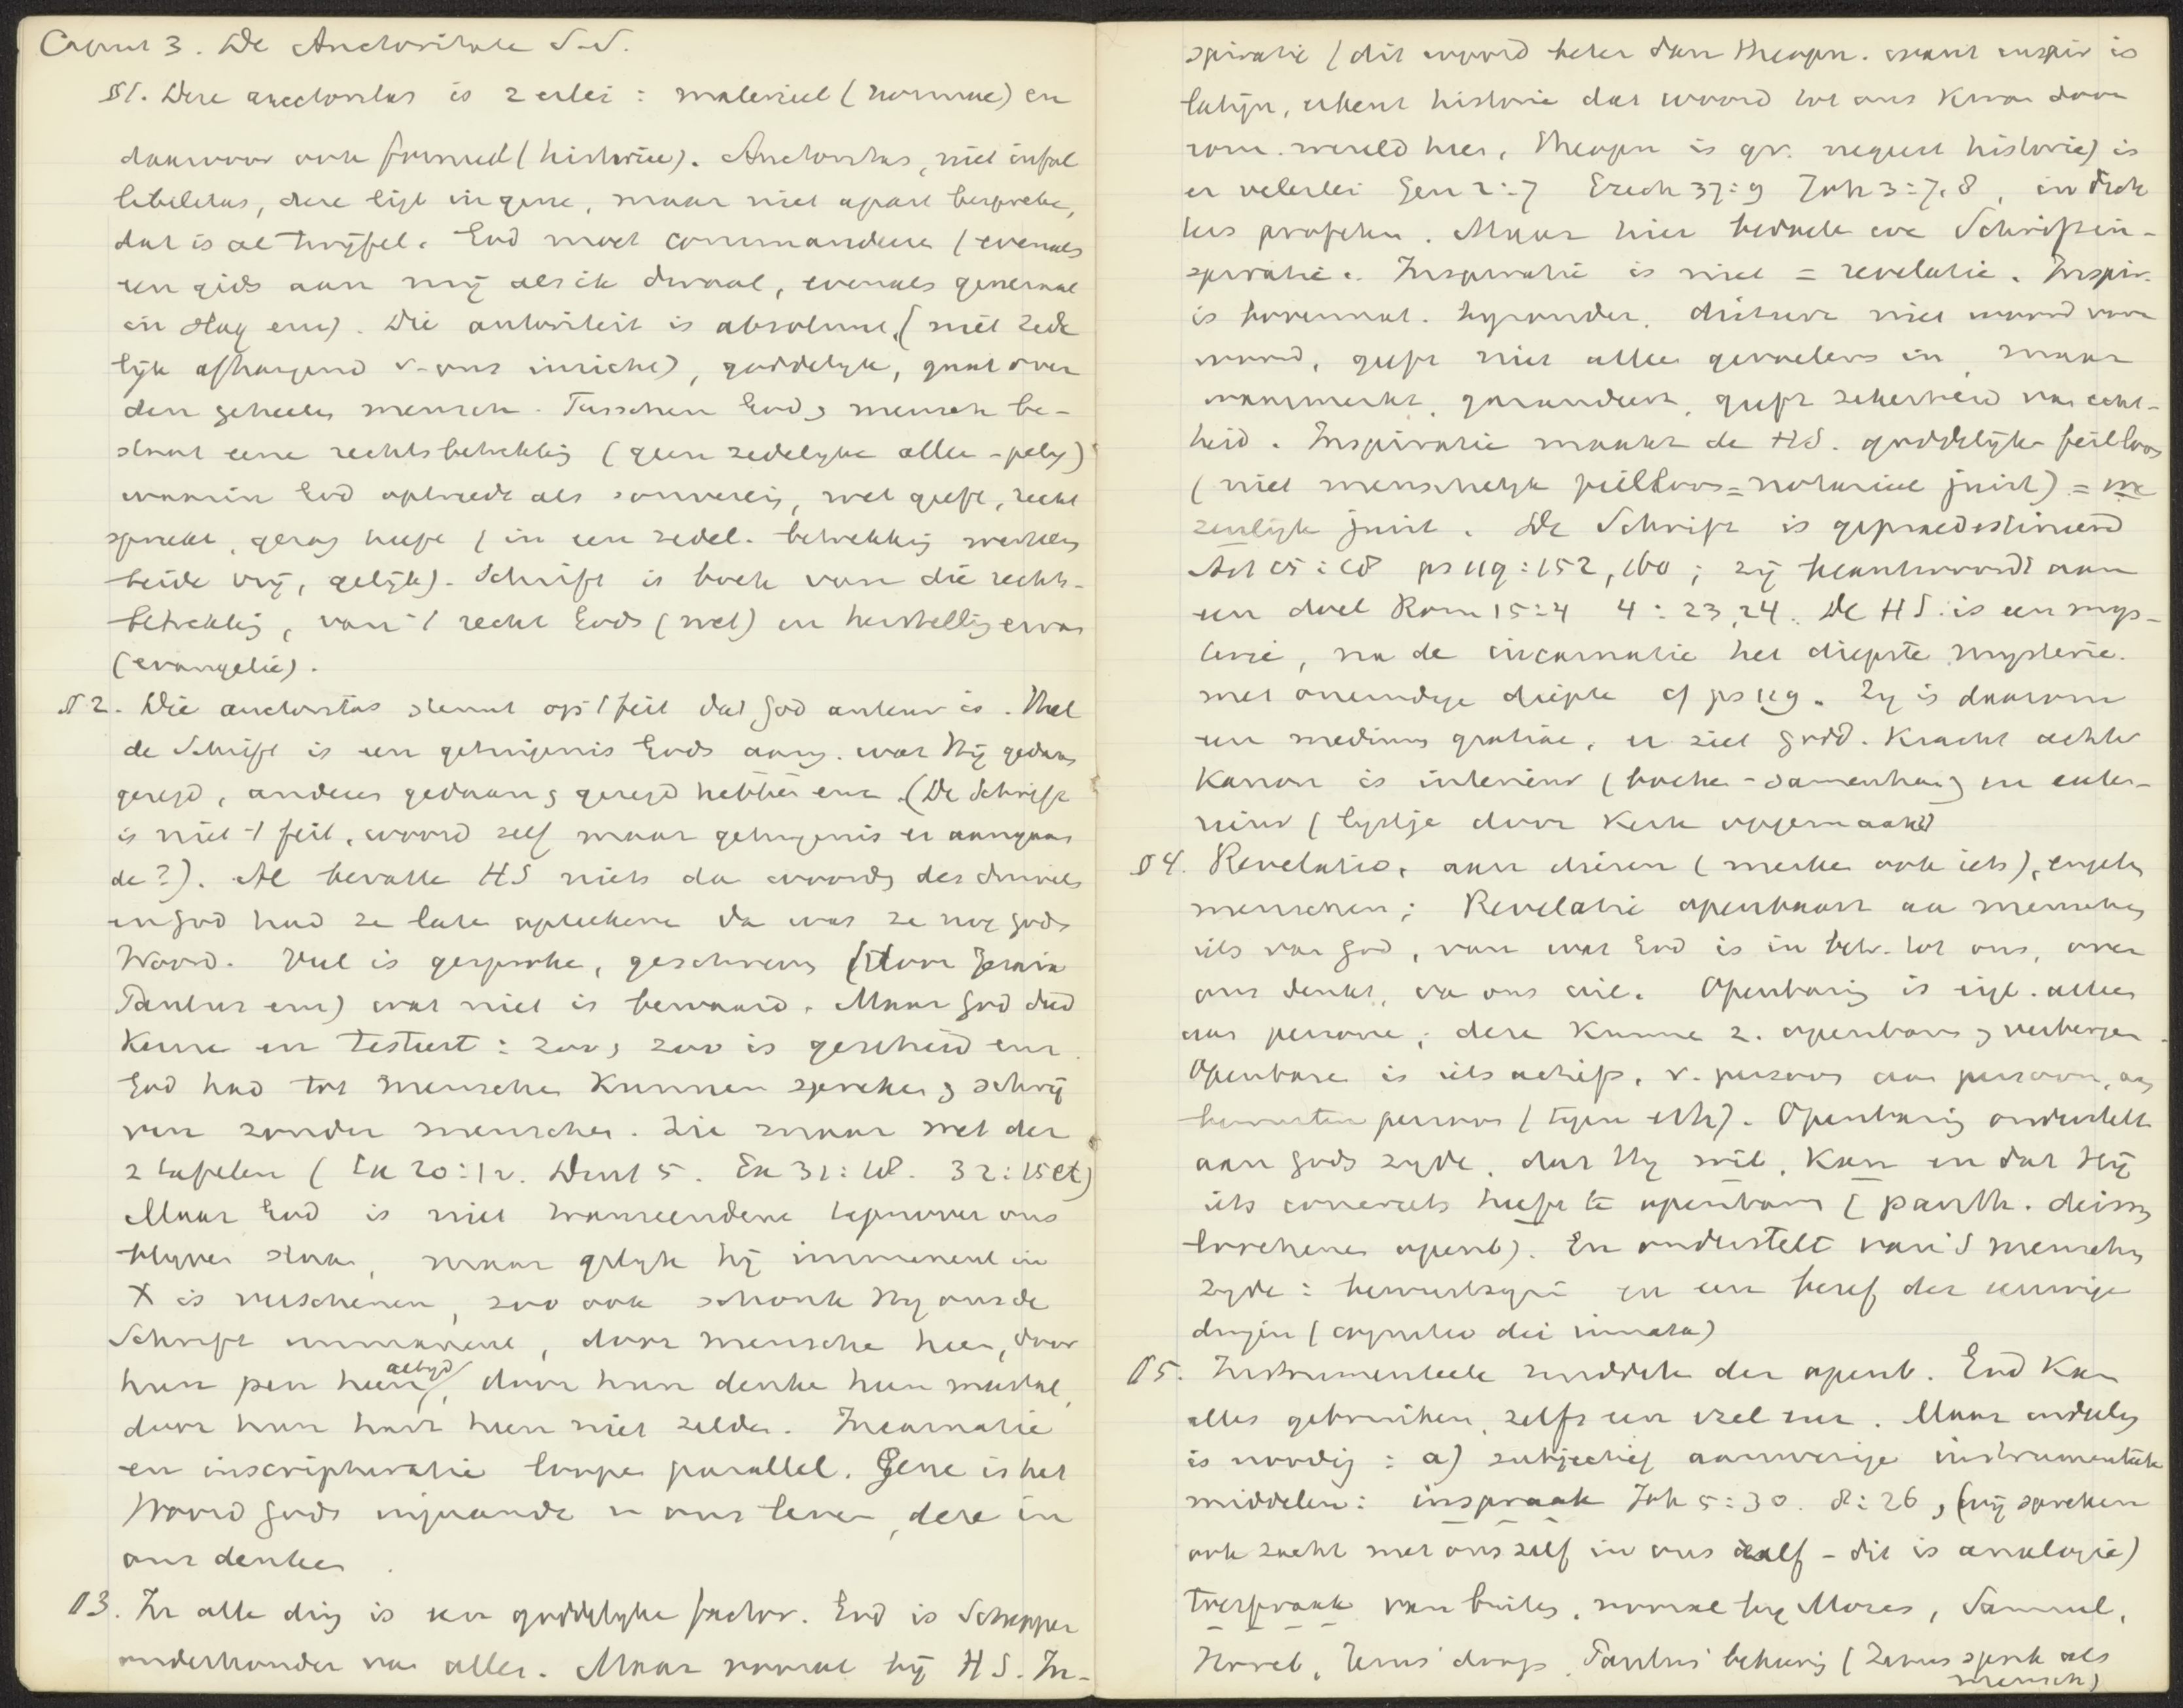 Caput 3. De Auctoritate S.S.
§1. Deze auctoritas is 2 erlei : materieel (normae) en
daarvoor ook formeel (historiae). Auctoritas, niet infal
libilitas, deze ligt in gene, maar niet apart bespreke,
dat is al twijfel. God moet commandeere (evenals
een gids aan mij als ik dwaal, evenals generaal
in slag enz). Die autoriteit is absoluut, (niet zede
lijk afhangend v. ons inzicht), goddelyk, gaat over
den geheelen mensch. Tusschen God & mensch be-
staat eene rechtsbetrekking (geen zedelyke alleen)
waarin God optreedt als souverein, wet geeft, recht
spreekt, gezag heeft (in een zedel. betrekking
beide vrij, gelijk). Schrift is boek van die rechts-
betrekking, van 't recht Gods (wet) en herstelling ervan
(evangelie).
§2. Die auctoritas steunt op 't feit dat God auteur is. Heel
de Schrift is een getuigenis Gods aang. wat Hij gedaan
gezegd, anderen gedaan & gezegd hebben enz. (De Schrift
is niet 't feit, woord zelf maar getuigenis er aangaan
de?). Al bevatte HS niets dan woorden des duivels
en God had ze laten opteekene dan was ze nog Gods
Woord. Veel is gesproke, geschreven (door Jesaia
Paulus enz) wat niet is bewaard. Maar God deed
keuze en testeert : zoo & zoo is geschied enz.
God had tot menschen kunnen spreken & schrij
ven zonder menschen. Zie maar met der
2 tafelen (Ex 20:1v. Deut 5. Ex 31:18. 32:15 etc)
Maar God is niet transcendent tegenover ons
blyven staan, maar gelyk hij immanent in
X is verschenen, zoo ook schonk Hy ons de
Schrift immanent, door mensche heen, door
hun pen heen altyd, door hun denke heen meestal,
door hun hart heen niet zelden. Incarnatie
en inscripturatie loopen parallel. Gene is het
Woord Gods ingaande in ons leven, deze in
ons denken.
§3. In alle ding is een goddelyke factor. God is Schepper
onderhouder van alles. Maar vooral bij HS. In-
spiratie (dit woord beter dan theopn. want inspir is
latijn, erkent historie dat woord tot ons kwam door
rom. wereld heen, theopn is gr. negeert historie) is
er velerlei Gen 2:7 Ezech 37:9 Joh 3:7,8, in
profeten. Maar hier bedoelen we Schriftin-
spiratie. Inspiratie is niet = revelatie. Inspir.
is bovennat. bijzonder, dicteert niet woord voor
woord, geeft niet alleen gevoelens in, maar
waarmerkt, garandeert, geeft zekerheid van echt-
heid. Inspiratie maakt de HS. goddelijk feilloos
(niet menschelyk feilloos = notarieel juist) = we
zenlijk juist. De Schrift is gepraedestineerd
Act 15:18 ps 119:152, 160 ; zij beantwoordt aan
een doel Rom 15:4 4:23,24. De HS. is een mys-
terie, na de incarnatie het diepste mysterie.
met oneindige diepte cf ps 119. Zy is daarom
een medium gratiae, er ziet godd. kracht achter
Kanon is interieur (boeken-samenhang en exter-
rieur (lystje door Kerk opgemaakt)
§4. Revelatio, aan dieren (merken ook iets), engelen
menschen; Revelatie openbaart aan menschen
iets van God, van wat God is in betr. tot ons, over
ons denkt, van ons wil. Openbaring is eigl. alleen
aan persone; deze kunne z. openbaren & verbergen.
Openbare is iets actiefs, v. persoon aan persoon, aan
bewusten persoon (tegen Eth). Openbaring onderstelt
aan Gods zyde, dat Hy wil, kan en dat Hij
iets concreets heeft te openbaren (panth. deism
loochenen openb). En onderstelt van 's menschen
zyde : bewustzyn en een besef der eeuwige
dingen (cognitio dei innata)
§5. Instrumenteele middele der openb. God kan
alles gebruiken, zelfs een ezel enz. Maar
is noodig : a) subjectief aanwezige instrumenteele
middelen: inspraak Joh 5:30. 8:26, (wij spreken
ook zacht met ons zelf in ons zelf – dit is analogie)
toespraak van buiten, vooral bij Mozes, Samuel,
Horeb, Jezus' doop, Paulus' bekeering (Jezus sprak als
mensch)